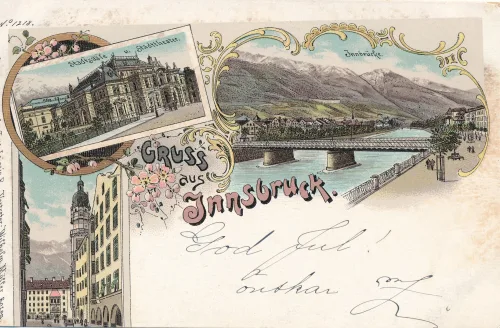 No. 1218.
Stadtsäle u. Stadttheater.
Innbrücke.
Gruss
aus
Innsbruck.
God Jul!
önskar